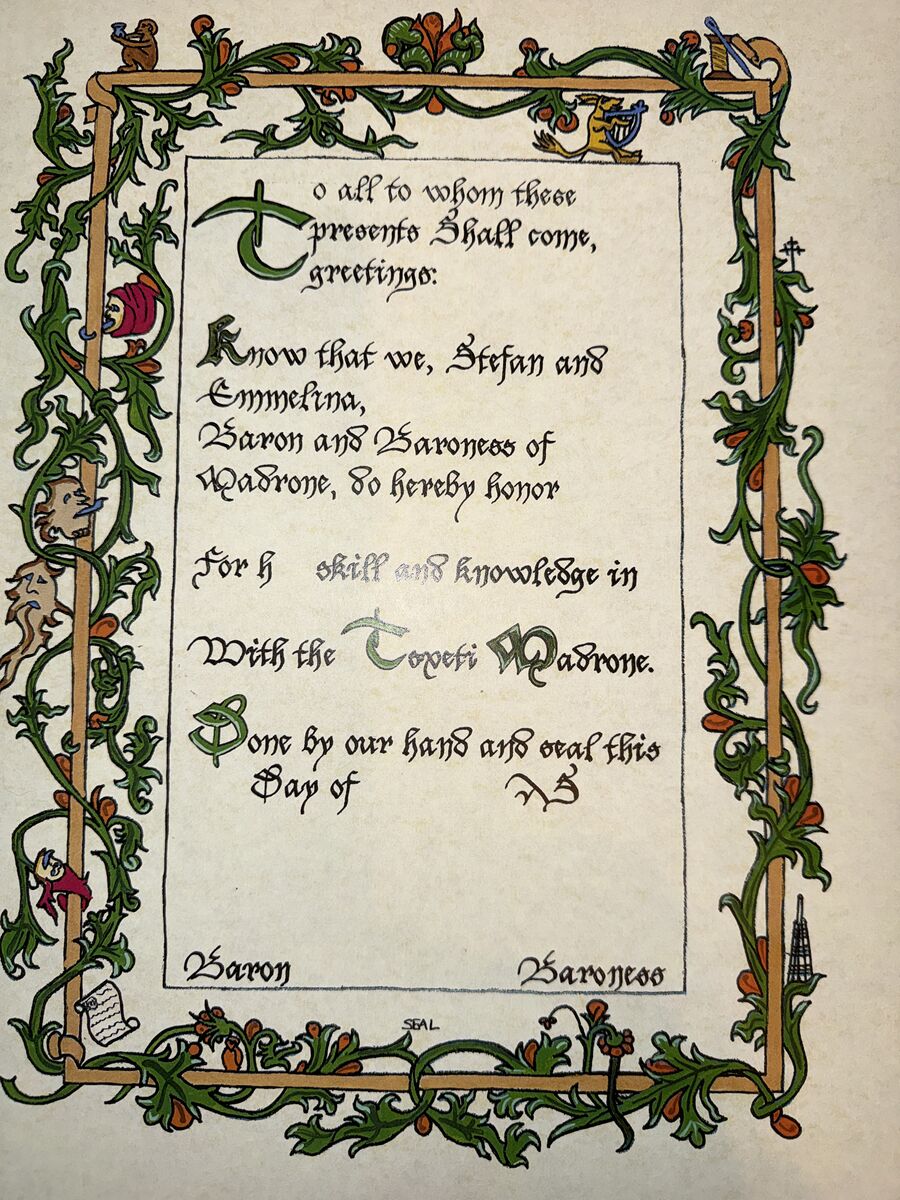 To all to whom these
presents Shall come,
greetings:
Know that we, Stefan and
Emmelina,
Baron and Baroness of
Madrone, do hereby honor
For h skill and knowledge in
With the Toxeti Madrone.
Done by our hand and seal this
Day of AS
Baron Baroness
SEAL